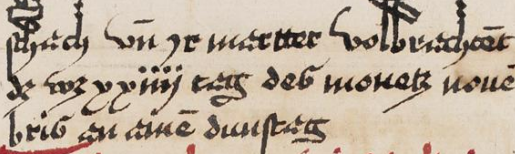 schach vn̄ yr martter volbrachtēt
dz wz xxiiij tag des monetz nouē
bris an ainē dunstag